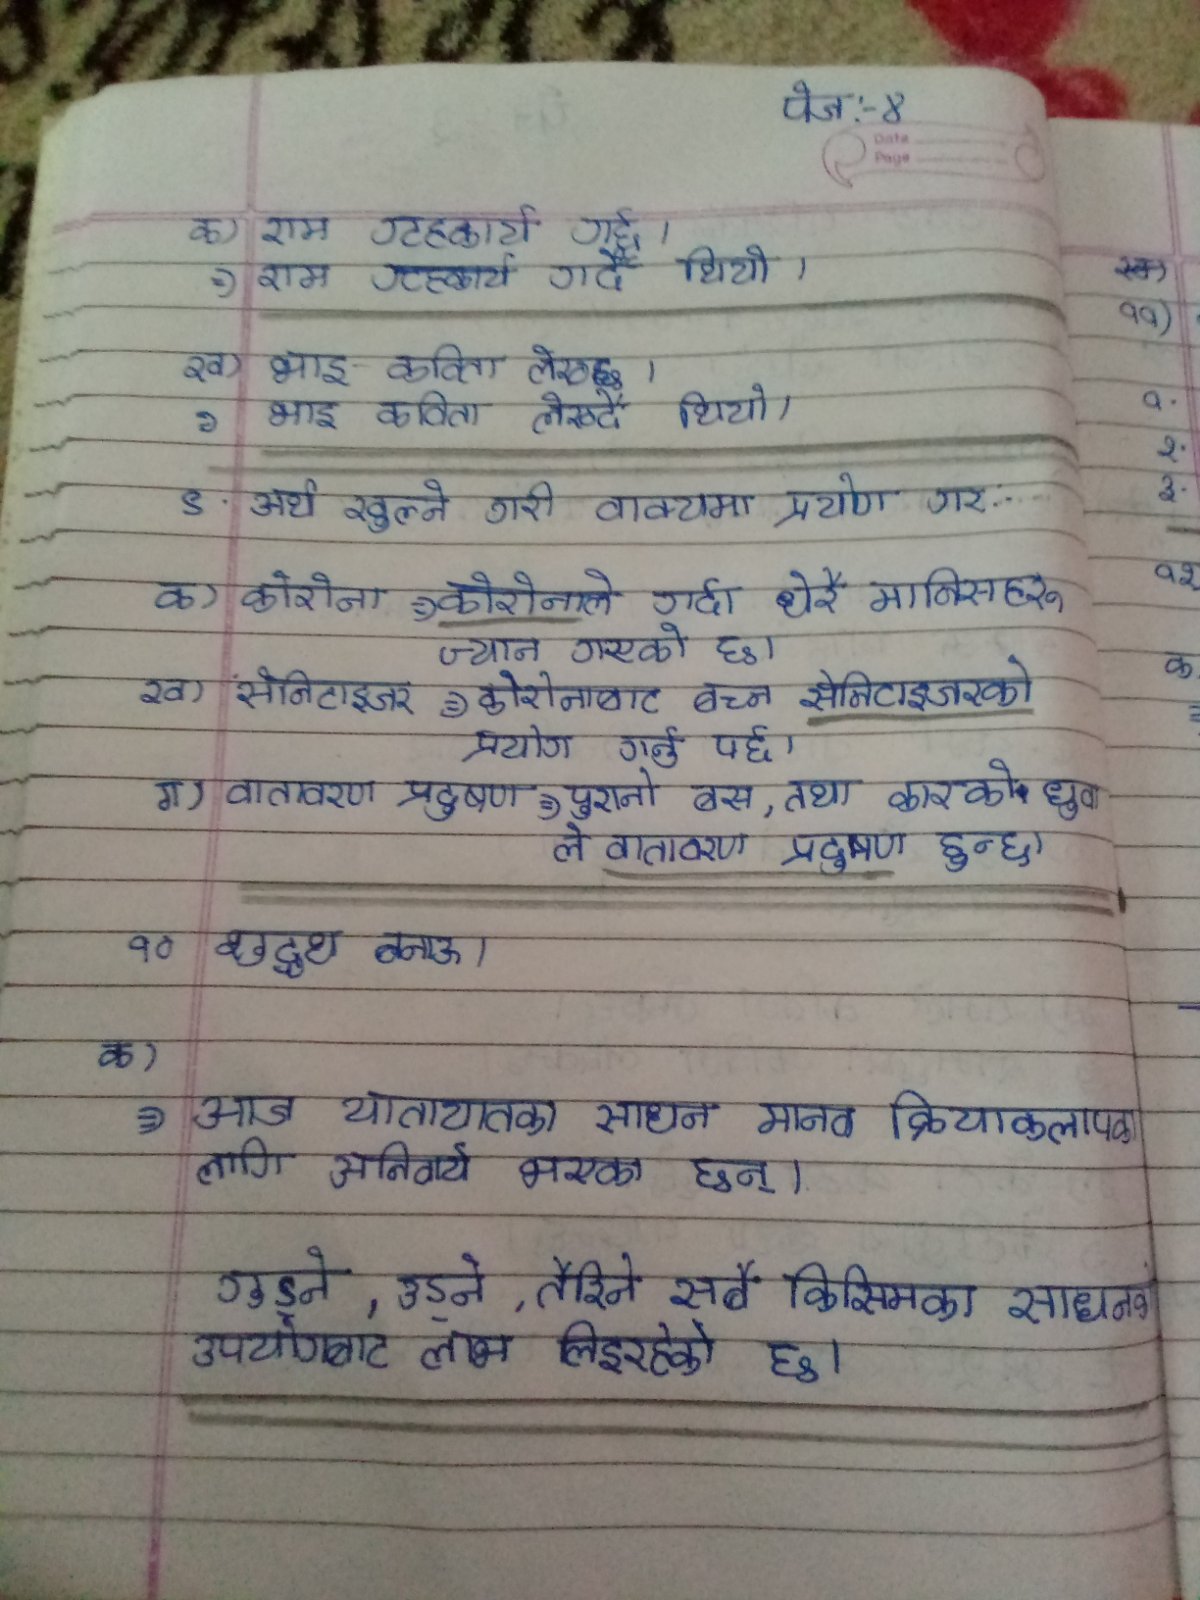 पेज:-४
Date
Page
क) राम गृहकार्य गर्छ।
⇒ राम गृहकार्य गर्दै थियो।
ख) भाइ कविता लेख्छ।
⇒ भाइ कविता लेख्दै थियो।
९. अर्थ खुल्ने गरी वाक्यमा प्रयोग गर:-
क) कोरोना ⇒ कोरोनाले गर्दा धेरै मानिसहरु
ज्यान गएको छ।
ख) सेनिटाइजर ⇒ कोरोनाबाट बच्न सेनिटाइजरको
प्रयोग गर्नु पर्छ।
ग) वातावरण प्रदुषण ⇒ पुरानो बस, तथा कारको धुवा
ले वातावरण प्रदुषण हुन्छ।
१० शुद्ध बनाऊ।
क)
⇒ आज यातायातका साधन मानव क्रियाकलापका
लागि अनिवार्य भएका छन्।
गुड्ने, उड्ने, तैरिने सबै किसिमका साधनको
उपयोगबाट लाभ लिइरहेको छ।
११)
१.
२.
३.
१२
क